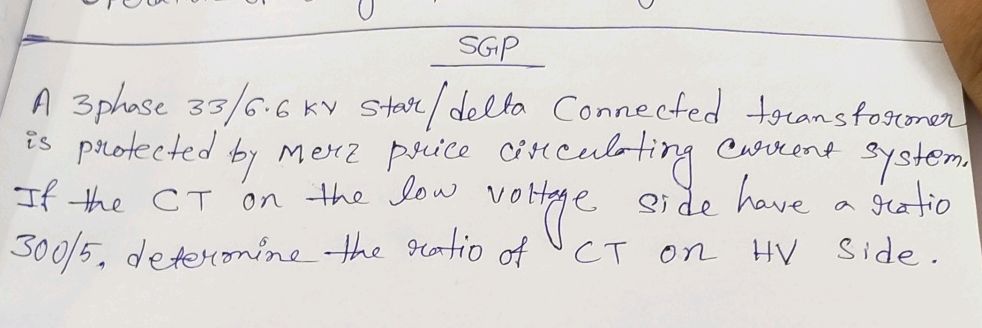 SGP
A 3phase 33/6.6 KV Star/delta Connected transformer
is protected by Merz price circulating current system.
If the CT on the low voltage side have a ratio
300/5, determine the ratio of CT on HV Side.